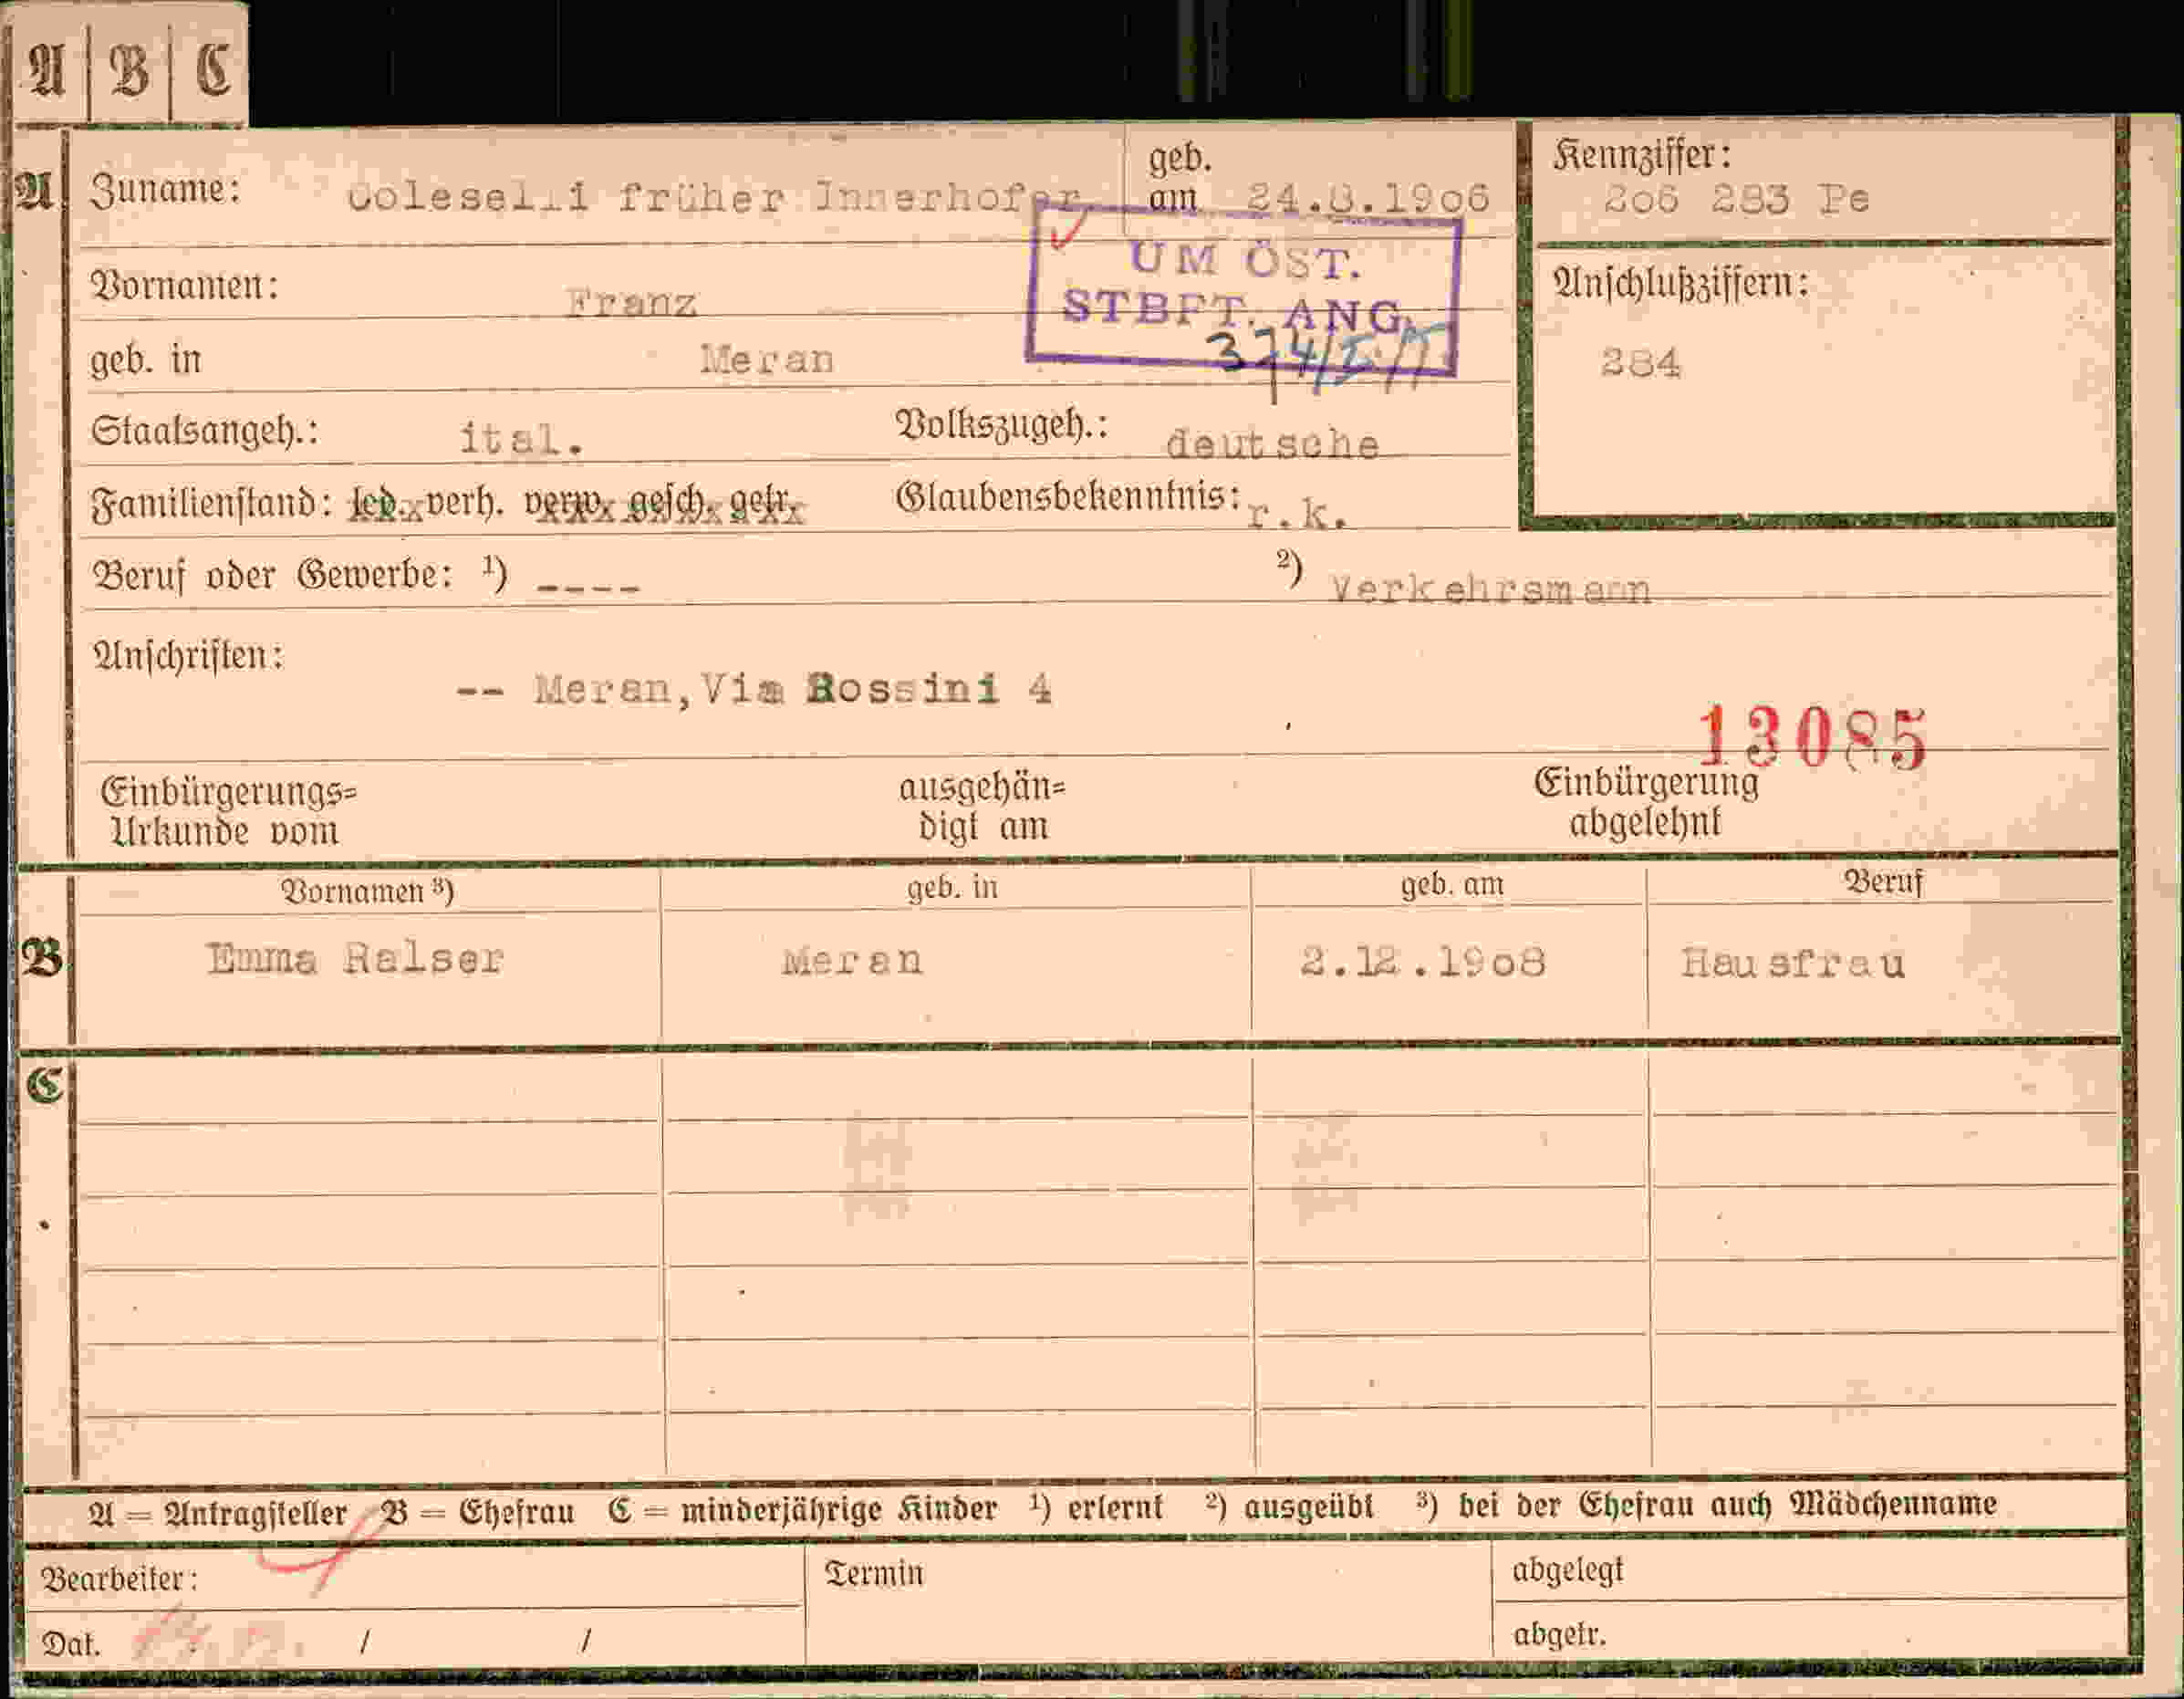 A B C
A Zuname: Coleselli früher Innerhofer geb. am 24.8.1906 Kennziffer: 206 283 Pe
UM ÖST. STBFT. ANG.
Vornamen: Franz
Anschlußziffern: 284
geb. in Meran
Staatsangeh.: ital. Volkszugeh.: deutsche
Familienstand: led. verh. verw. gesch. getr. Glaubensbekenntnis: r.k.
Beruf oder Gewerbe: 1) ---- 2) Verkehrsmann
Anschriften: -- Meran, Via Rossini 4
13085
Einbürgerungs= ausgehän= Einbürgerung
Urkunde vom digt am abgelehnt
Vornamen 3) geb. in geb. am Beruf
B Emma Ralser Meran 2.12.1908 Hausfrau
C
A = Antragsteller B = Ehefrau C = minderjährige Kinder 1) erlernt 2) ausgeübt 3) bei der Ehefrau auch Mädchenname
Bearbeiter: Termin abgelegt
Dat. / / abgetr.